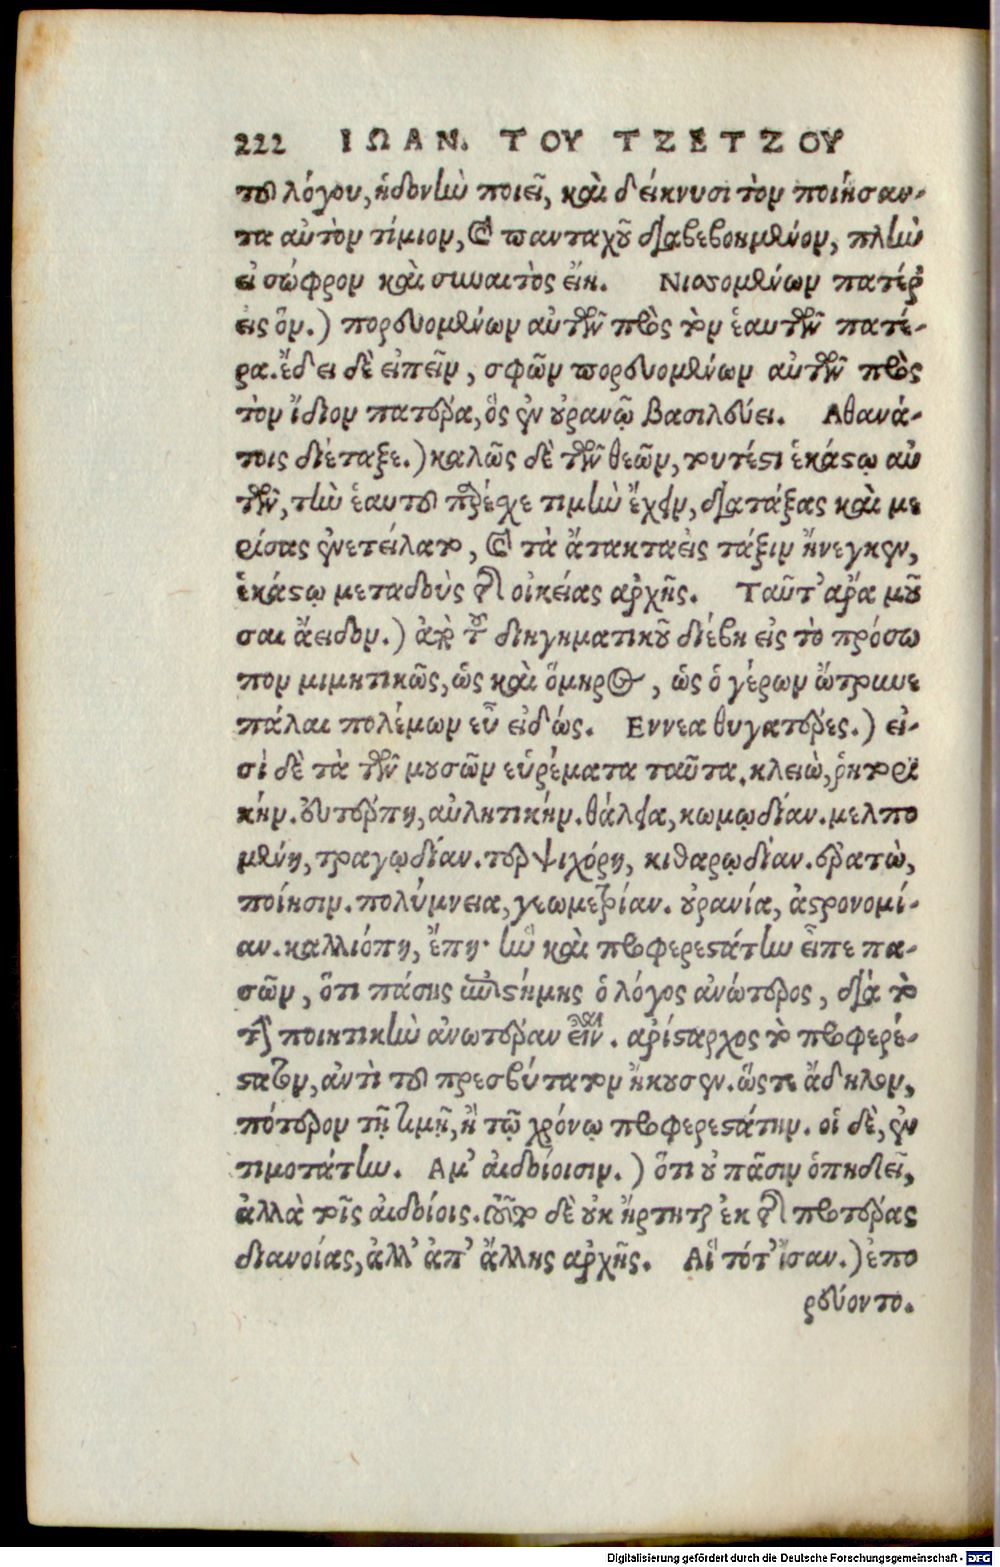 222 ΙΩΑΝ. ΤΟΥ ΤΖΕΤΖΟΥ
τοῦ λόγου, ἡδονὴν ποιεῖ, καὶ δείκνυσι τὸν ποιήσαν-
τα αὐτὸν τίμιον, καὶ πανταχοῦ διαβεβοημένον, πλὴν
εἰ σώφρον καὶ συναιτὸς εἴη. Νισσομένων πατέρ
εἰς ὅν.) πορευομένων αὐτῶν πρὸς τὸν ἑαυτῶν πατέ-
ρα. ἔδει δὲ εἰπεῖν, σφῶν πορευομένων αὐτῶν πρὸς
τὸν ἴδιον πατέρα, ὅς ἐν οὐρανῷ βασιλεύει. Αθανά-
τοις διέταξε.) καλῶς δὲ τῶν θεῶν, τουτέστι ἑκάστῳ αὐ
τῶν, τὴν ἑαυτοῦ τιμὴν ἔχειν, διατάξας καὶ με
ρίσας ἐνετείλατο, καὶ τὰ ἄτακτα εἰς τάξιν ἤνεγκεν,
ἑκάστῳ μεταδοὺς τῆς οἰκείας ἀρχῆς. Ταῦτ' ἄρα μοῦ
σαι ἄειδον.) ἀπὸ τοῦ διηγηματικοῦ διέβη εἰς τὸ πρόσω
πον μιμητικῶς, ὡς καὶ ὅμηρος, ὡς ὁ γέρων ὤτρυνε
πάλαι πολέμων εὖ εἰδώς. Εννεα θυγατέρες.) εἰ-
σὶ δὲ τὰ τῶν μουσῶν εὑρέματα ταῦτα. κλειὼ, ῥητορι
κήν. εὐτέρπη, αὐλητικήν. θάλεια, κωμῳδίαν. μελπο
μένη, τραγῳδίαν. τερψιχόρη, κιθαρῳδίαν. ἐρατὼ,
ποίησιν. πολύμνεια, γεωμετρίαν. οὐρανία, ἀστρονομί-
αν. καλλιόπη, ἔπη· ἣν καὶ προφερεστάτην εἶπε πα-
σῶν, ὅτι πάσης ἐπιστήμης ὁ λόγος ἀνώτερος, διὰ τὸ
τὴν ποιητικὴν ἀνωτέραν εἶναι. ἀρίσταρχος τὸ προφερέ-
στατον, ἀντὶ τοῦ πρεσβύτατον ἤκουσεν. ὥστε ἄδηλον,
πότερον τῇ τιμῇ, ἢ τῷ χρόνῳ προφερεστάτην. οἱ δὲ, ἐν
τιμοτάτην. Αμ' αἰδοίοισιν.) ὅτι οὐ πᾶσιν ὀπηδεῖ,
ἀλλὰ τοῖς αἰδοίοις. τοῦτο δὲ οὐκ ἤρτηται ἐκ τῆς προτέρας
διανοίας, ἀλλ' ἀπ' ἄλλης ἀρχῆς. Αἳ τότ' ἴσαν.) ἐπο
ρεύοντο.
Digitalisierung gefördert durch die Deutsche Forschungsgemeinschaft - DFG